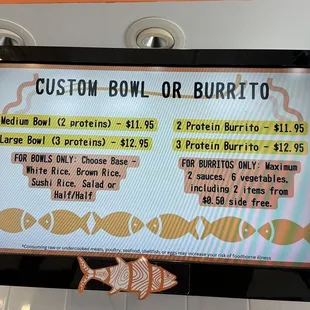 CUSTOM BOWL OR BURRITO
Medium Bowl (2 proteins) - $11.95
Large Bowl (3 proteins) - $12.95
FOR BOWLS ONLY: Choose Base -
White Rice, Brown Rice,
Sushi Rice, Salad or
Half/Half
2 Protein Burrito - $11.95
3 Protein Burrito - $12.95
FOR BURRITOS ONLY: Maximum
2 sauces, 6 vegetables,
including 2 items from
$0.50 side free.
*Consuming raw or undercooked meats, poultry, seafood, shellfish, or eggs may increase your risk of foodborne illness